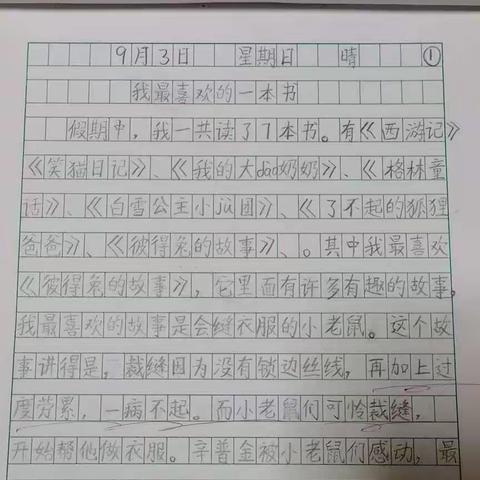 9月3日 星期日 晴 ①
我最喜欢的一本书
假期中，我一共读了7本书。有《西游记》
《笑猫日记》、《我的大dad奶奶》、《格林童
话》、《白雪公主小jū团》、《了不起的狐狸
爸爸》、《彼得兔的故事》、。其中我最喜欢
《彼得兔的故事》，它里面有许多有趣的故事，
我最喜欢的故事是会缝衣服的小老鼠。这个故
事讲得是，裁缝因为没有锁边丝线，再加上过
度劳累，一病不起。而小老鼠们可怜裁缝，
开始帮他做衣服。辛普金被小老鼠们感动，最